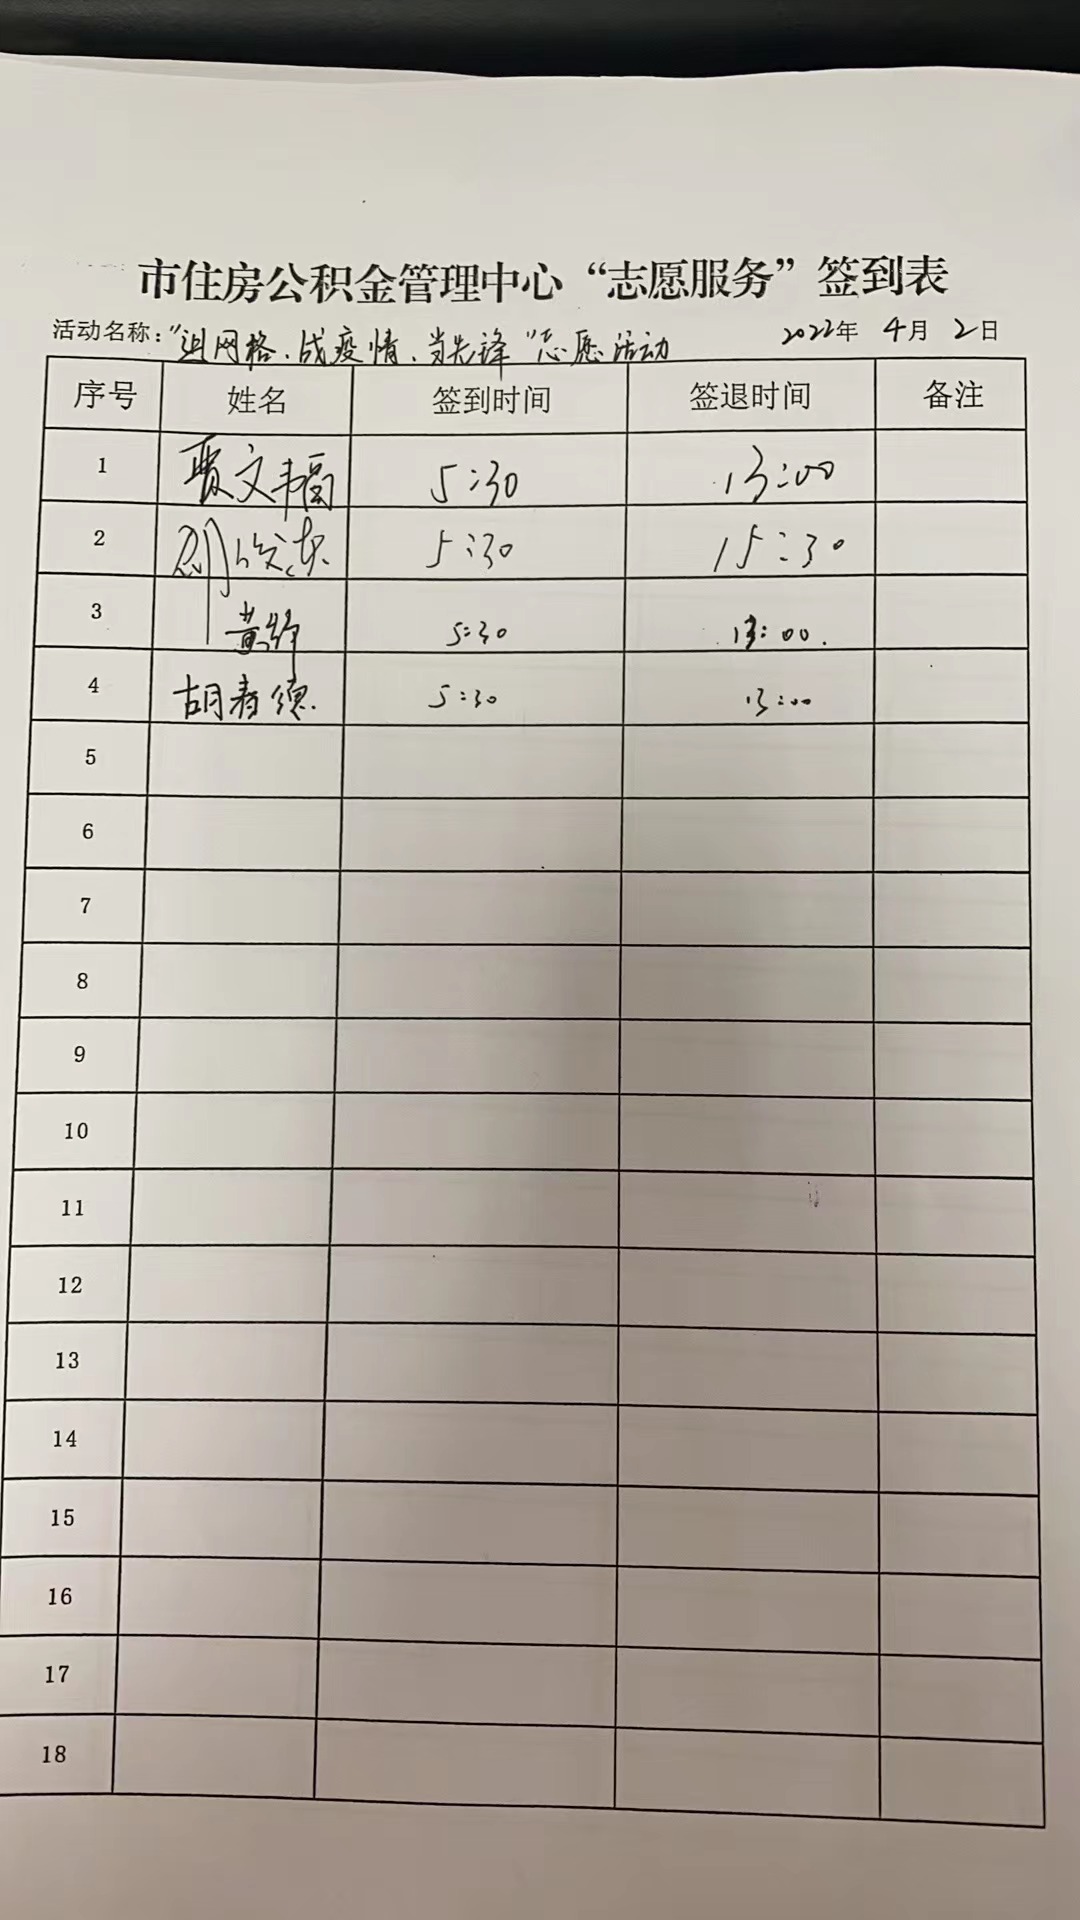 市住房公积金管理中心“志愿服务”签到表
活动名称：“组网格、战疫情、当先锋”志愿活动 2022年 4月 2日
序号 姓名 签到时间 签退时间 备注
1 贾文韦 5:30 13:00
2 5:30 15:30
3 黄 5:30 13:00.
4 胡春德. 5:30 13:00
5
6
7
8
9
10
11
12
13
14
15
16
17
18